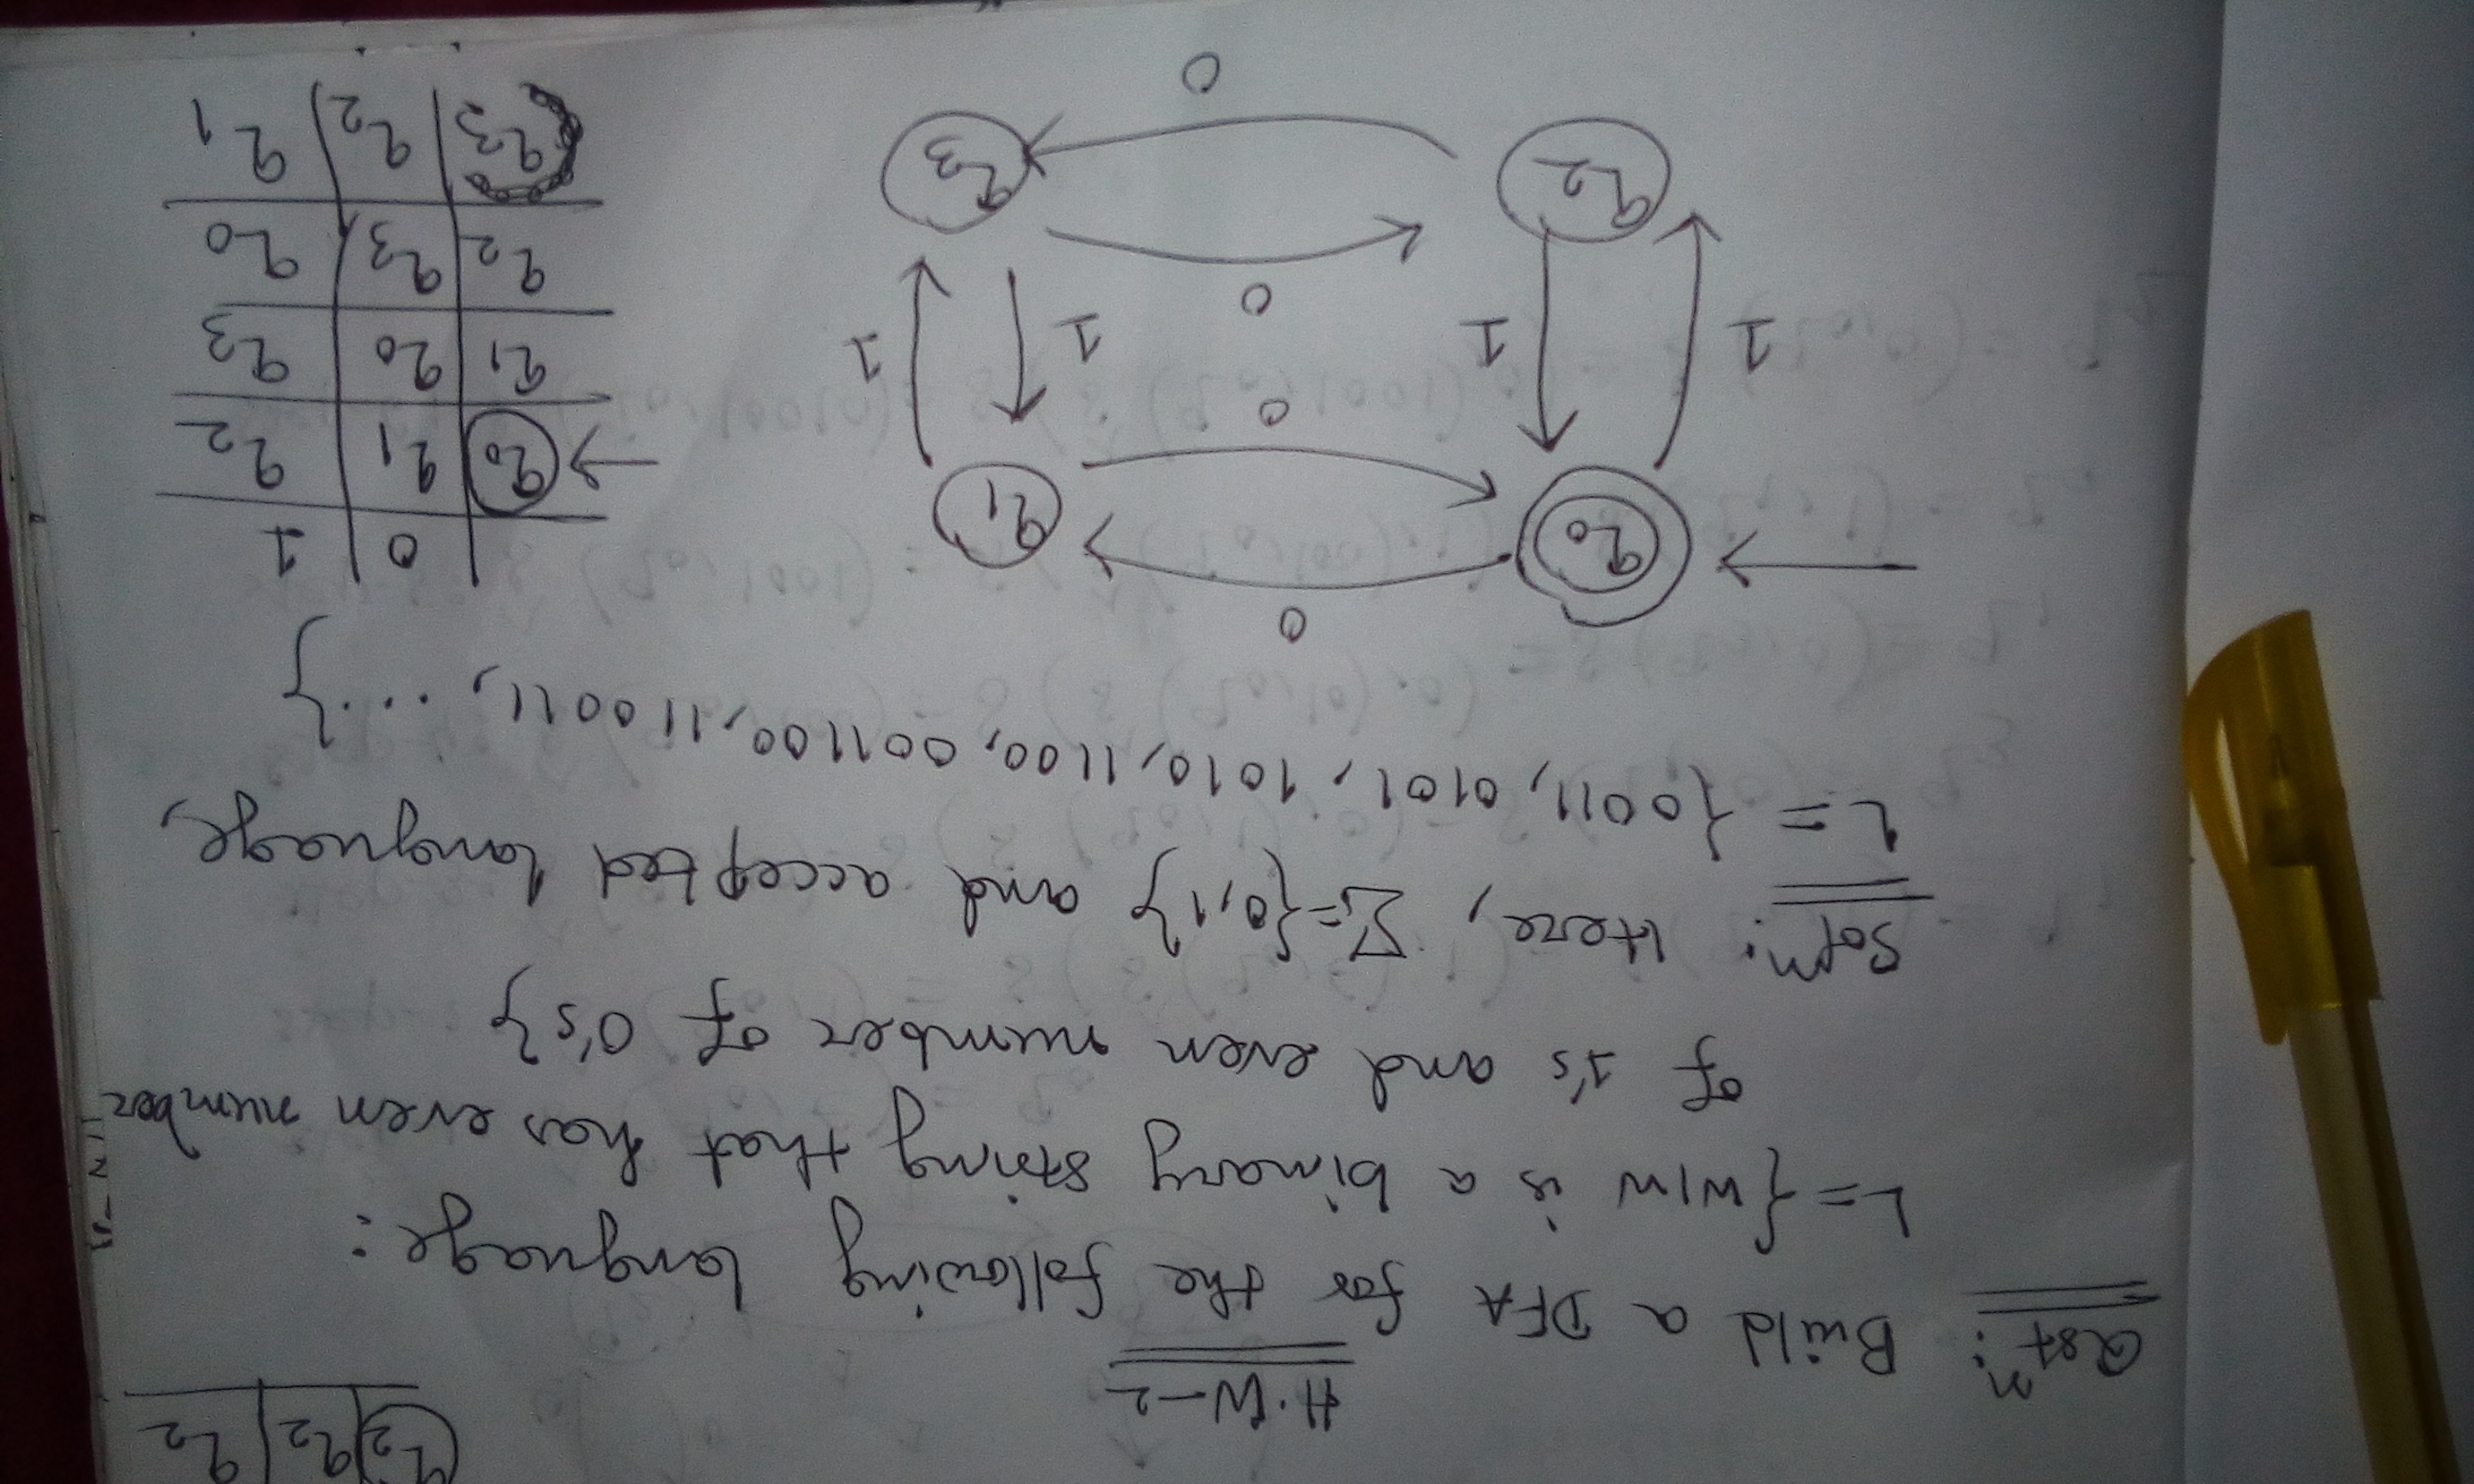 q2 | q2 | q2
H.W-2
Qstn: Build a DFA for the following language:
L={w|w is a binary string that has even number
of 1's and even number of 0's}
Soln: Here, Σ={0,1} and accepted language,
L = {0011, 0101, 1010, 1100, 001100, 110011, ....}
0
q0
q1
0
1
1
1
1
0
q2
q3
0
0 | 1
→ q0 | q1 | q2
q1 | q0 | q3
q2 | q3 | q0
q3 | q2 | q1